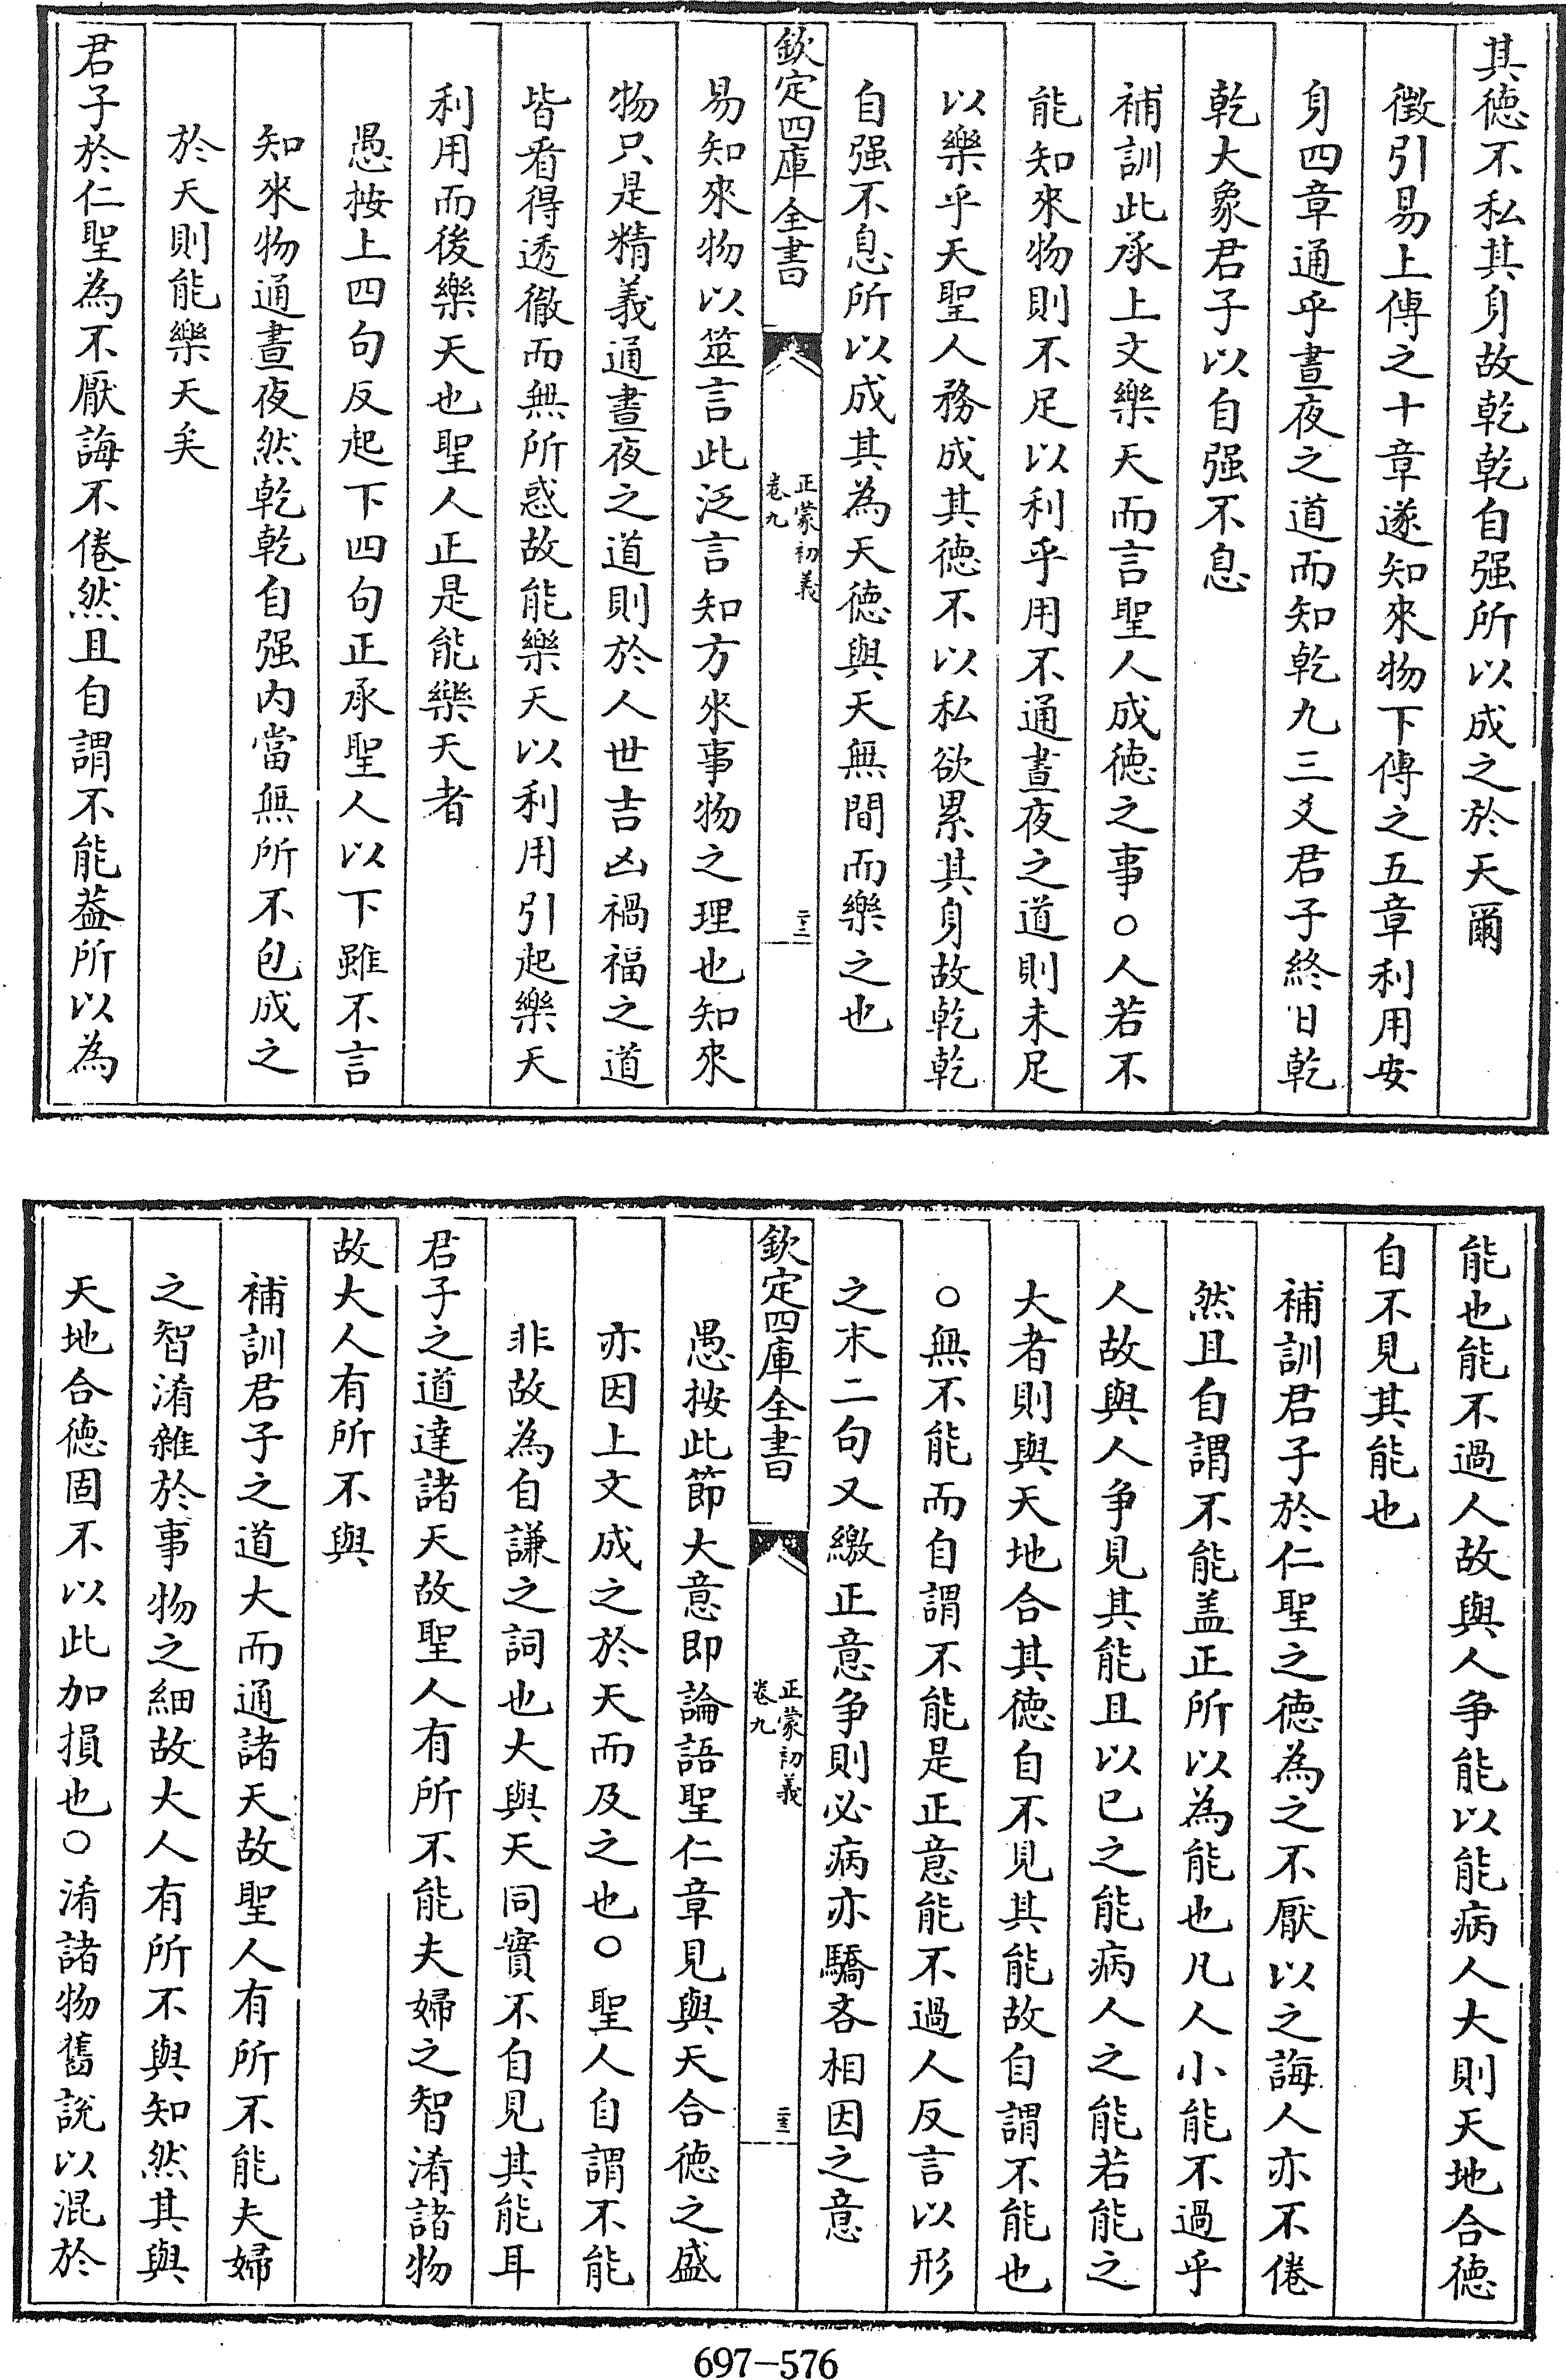 其德不私其身故乾乾自强所以成之於天爾
徵引易上傳之十章遂知來物下傳之五章利用安
身四章通乎晝夜之道而知乾九三爻君子終日乾
乾大象君子以自强不息
補訓此承上文樂天而言聖人成德之事○人若不
能知來物則不足以利乎用不通晝夜之道則未足
以樂乎天聖人務成其德不以私欲累其身故乾乾
自强不息所以成其為天德與天無間而樂之也
欽定四庫全書
正蒙初義
卷九
二十二
易知來物以筮言此泛言知方來事物之理也知來
物只是精義通晝夜之道則於人世吉凶禍福之道
皆看得透徹而無所惑故能樂天以利用引起樂天
利用而後樂天也聖人正是能樂天者
愚按上四句反起下四句正承聖人以下雖不言
知來物通晝夜然乾乾自强内當無所不包成之
於天則能樂天矣
君子於仁聖為不厭誨不倦然且自謂不能葢所以為
能也能不過人故與人争能以能病人大則天地合德
自不見其能也
補訓君子於仁聖之德為之不厭以之誨人亦不倦
然且自謂不能盖正所以為能也凡人小能不過乎
人故與人争見其能且以已之能病人之能若能之
大者則與天地合其德自不見其能故自謂不能也
○無不能而自謂不能是正意能不過人反言以形
之末二句又繳正意争則必病亦驕吝相因之意
欽定四庫全書
正蒙初義
卷九
二十三
愚按此節大意即論語聖仁章見與天合德之盛
亦因上文成之於天而及之也○聖人自謂不能
非故為自謙之詞也大與天同實不自見其能耳
君子之道達諸天故聖人有所不能夫婦之智淆諸物
故大人有所不與
補訓君子之道大而通諸天故聖人有所不能夫婦
之智淆雜於事物之細故大人有所不與知然其與
天地合德固不以此加損也○淆諸物舊說以混於
697-576